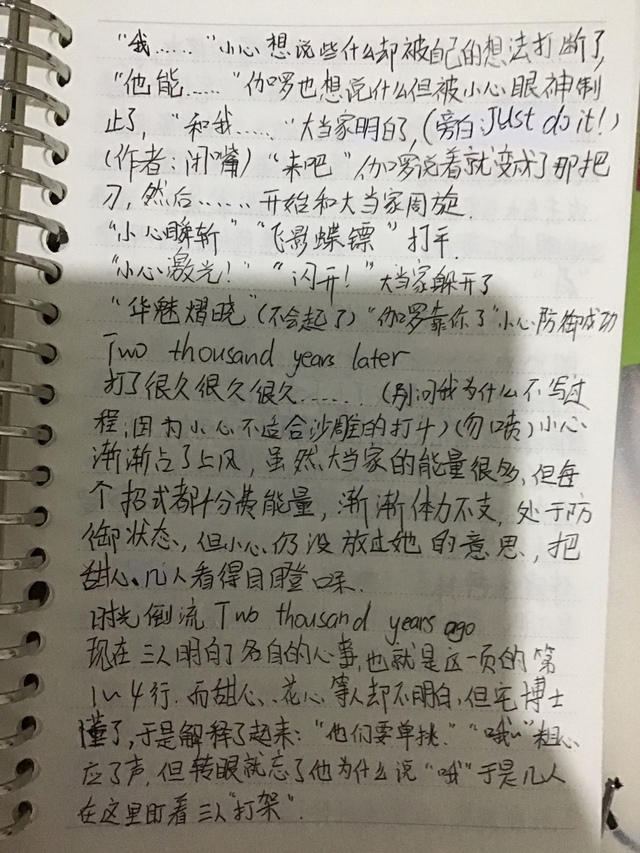 “我……”小心想说些什么却被自己的想法打断了,
“他能……”伽罗也想说什么但被小心眼神制
止了,“和我……”大当家明白了,(旁白:Just do it!)
(作者:闭嘴)“来吧”伽罗说着就变成了那把
刀,然后……开始和大当家周旋.
“小心瞬斩”“飞影蝶镖”打平.
“小心激光!”“闪开!”大当家躲开了
“华魅熠晓”(不会起了)“伽罗靠你了”小心防御成功
Two thousand years later
打了很久很久很久……(别问我为什么不写过
程,因为小心不适合沙雕的打斗)(勿喷)小心
渐渐占了上风,虽然大当家的能量很多,但每
个招式都十分费能量,渐渐体力不支,处于防
御状态,但小心仍没放过她的意思,把
甜心、几人看得目瞪口呆.
时光倒流 Two thousand years ago
现在三人明白了各自的心事,也就是这一页的第
1~4行.而甜心、花心等人却不明白,但宅博士
懂了,于是解释了起来:“他们要单挑.”“哦~”粗心
应了声,但转眼就忘了他为什么说“哦”于是几人
在这里盯着三人“打架”.